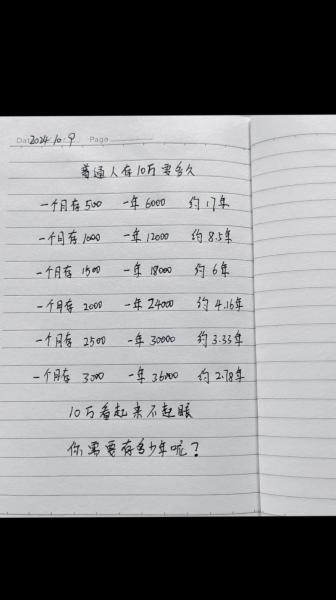 Date 2024.10.9 Page
普通人存10万要多久
一个月存500 一年6000 约17年
一个月存1000 一年12000 约8.5年
一个月存1500 一年18000 约6年
一个月存2000 一年24000 约4.16年
一个月存2500 一年30000 约3.33年
一个月存3000 一年36000 约2.78年
10万看起来不起眼
你需要存多少年呢？